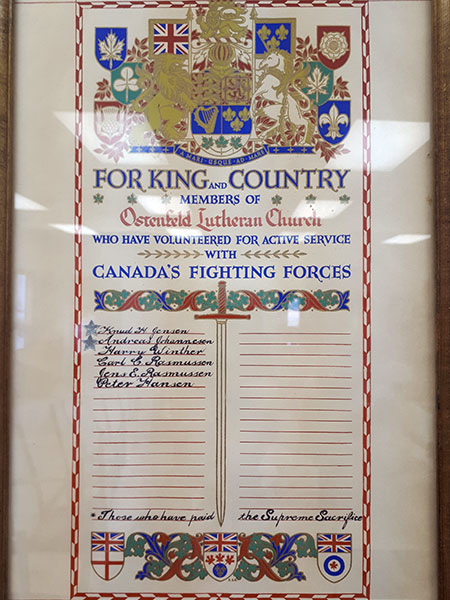 A MARI USQUE AD MARE
FOR KING AND COUNTRY
MEMBERS OF
Ostenfeld Lutheran Church
WHO HAVE VOLUNTEERED FOR ACTIVE SERVICE
WITH
CANADA'S FIGHTING FORCES
Knud H Jensen
Andreas Johannesen
Harry Winther
Carl E. Rasmussen
Jens E. Rasmussen
Peter Hansen
*Those who have paid the Supreme Sacrifice